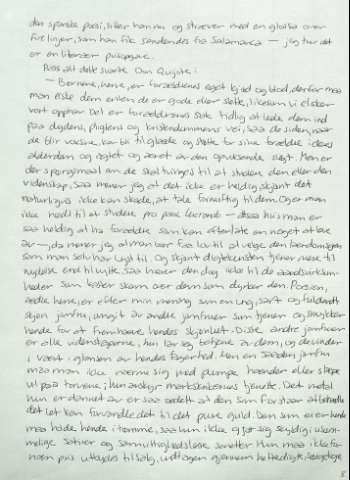 den spanske poesi, sitter han nu og stræver med en glose over
fire linjer, som han fik sendendes fra Salamanca — jeg tror det
er en literær prisopgave.
Paa alt dette svarte Don Quijote:
— Børnene, herre, er forældrenes eget kjød og blod, derfor maa
man elske dem enten de er gode eller slette, likesom vi elsker
vort opphav. Det er forældrenes sak tidlig at lede dem ind
paa dydens, pligtens og kristendommens vei, saa de siden, naar
de blir voksne, kan bli til glæde og støtte for sine forældre i deres
alderdom og agtet og æret av den opvoksende slegt. Men er
der spørgsmaal om de skal tvinges til at studere den eller den
videnskap, saa mener jeg at det ikke er heldig skjønt det
naturligvis ikke kan skade, at tale fornuftig til dem. Og er man
ikke nødt til at studere pro pane lucrando — altsaa hvis man er
saa heldig at ha forældre som kan efterlate en noget at leve
av —, da mener jeg at man bør faa lov til at vælge den lærdomsgren
som man selv har lyst til. Og skjønt digtekunsten tjener mere til
nydelse end til nytte, saa hører den dog ikke til de
heder som kaster skam over dem som dyrker den. Poesien,
ædle herre, er efter min mening som en ung, sart og fuldendt
skjøn jomfru, omgit av andre jomfruer som tjener og smykker
hende for at fremhæve hendes skjønhet. Disse andre jomfruer
er alle videnskaperne, hun lar sig betjene av dem, og de vinder
i værd i glansen av hendes fagerhed. Men en saadan jomfru
maa man ikke nærme sig med plumpe hænder eller slæpe
ut paa torvene; hun avskyr markskrikernes tjeneste. Det metal
hun er dannet av er saa ædelt at den som forstaar at behandle
det let kan forvandle det til det pure guld. Den som eier hende
maa holde hende i tømme, saa hun ikke gjør sig skyldig i usøm-
melige satirer og samvittighetsløse sonetter. Hun maa ikke for
noen pris utbydes til salg, undtagen gjennem heltedigte,
8